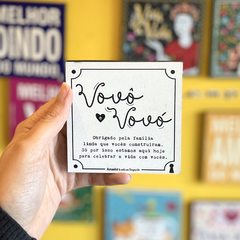 MELHOR
DINDO
DO MUNDO
Vovô
Vovó
Obrigado pela família
linda que vocês construíram.
Só por isso estamos aqui hoje
para celebrar a vida com vocês.